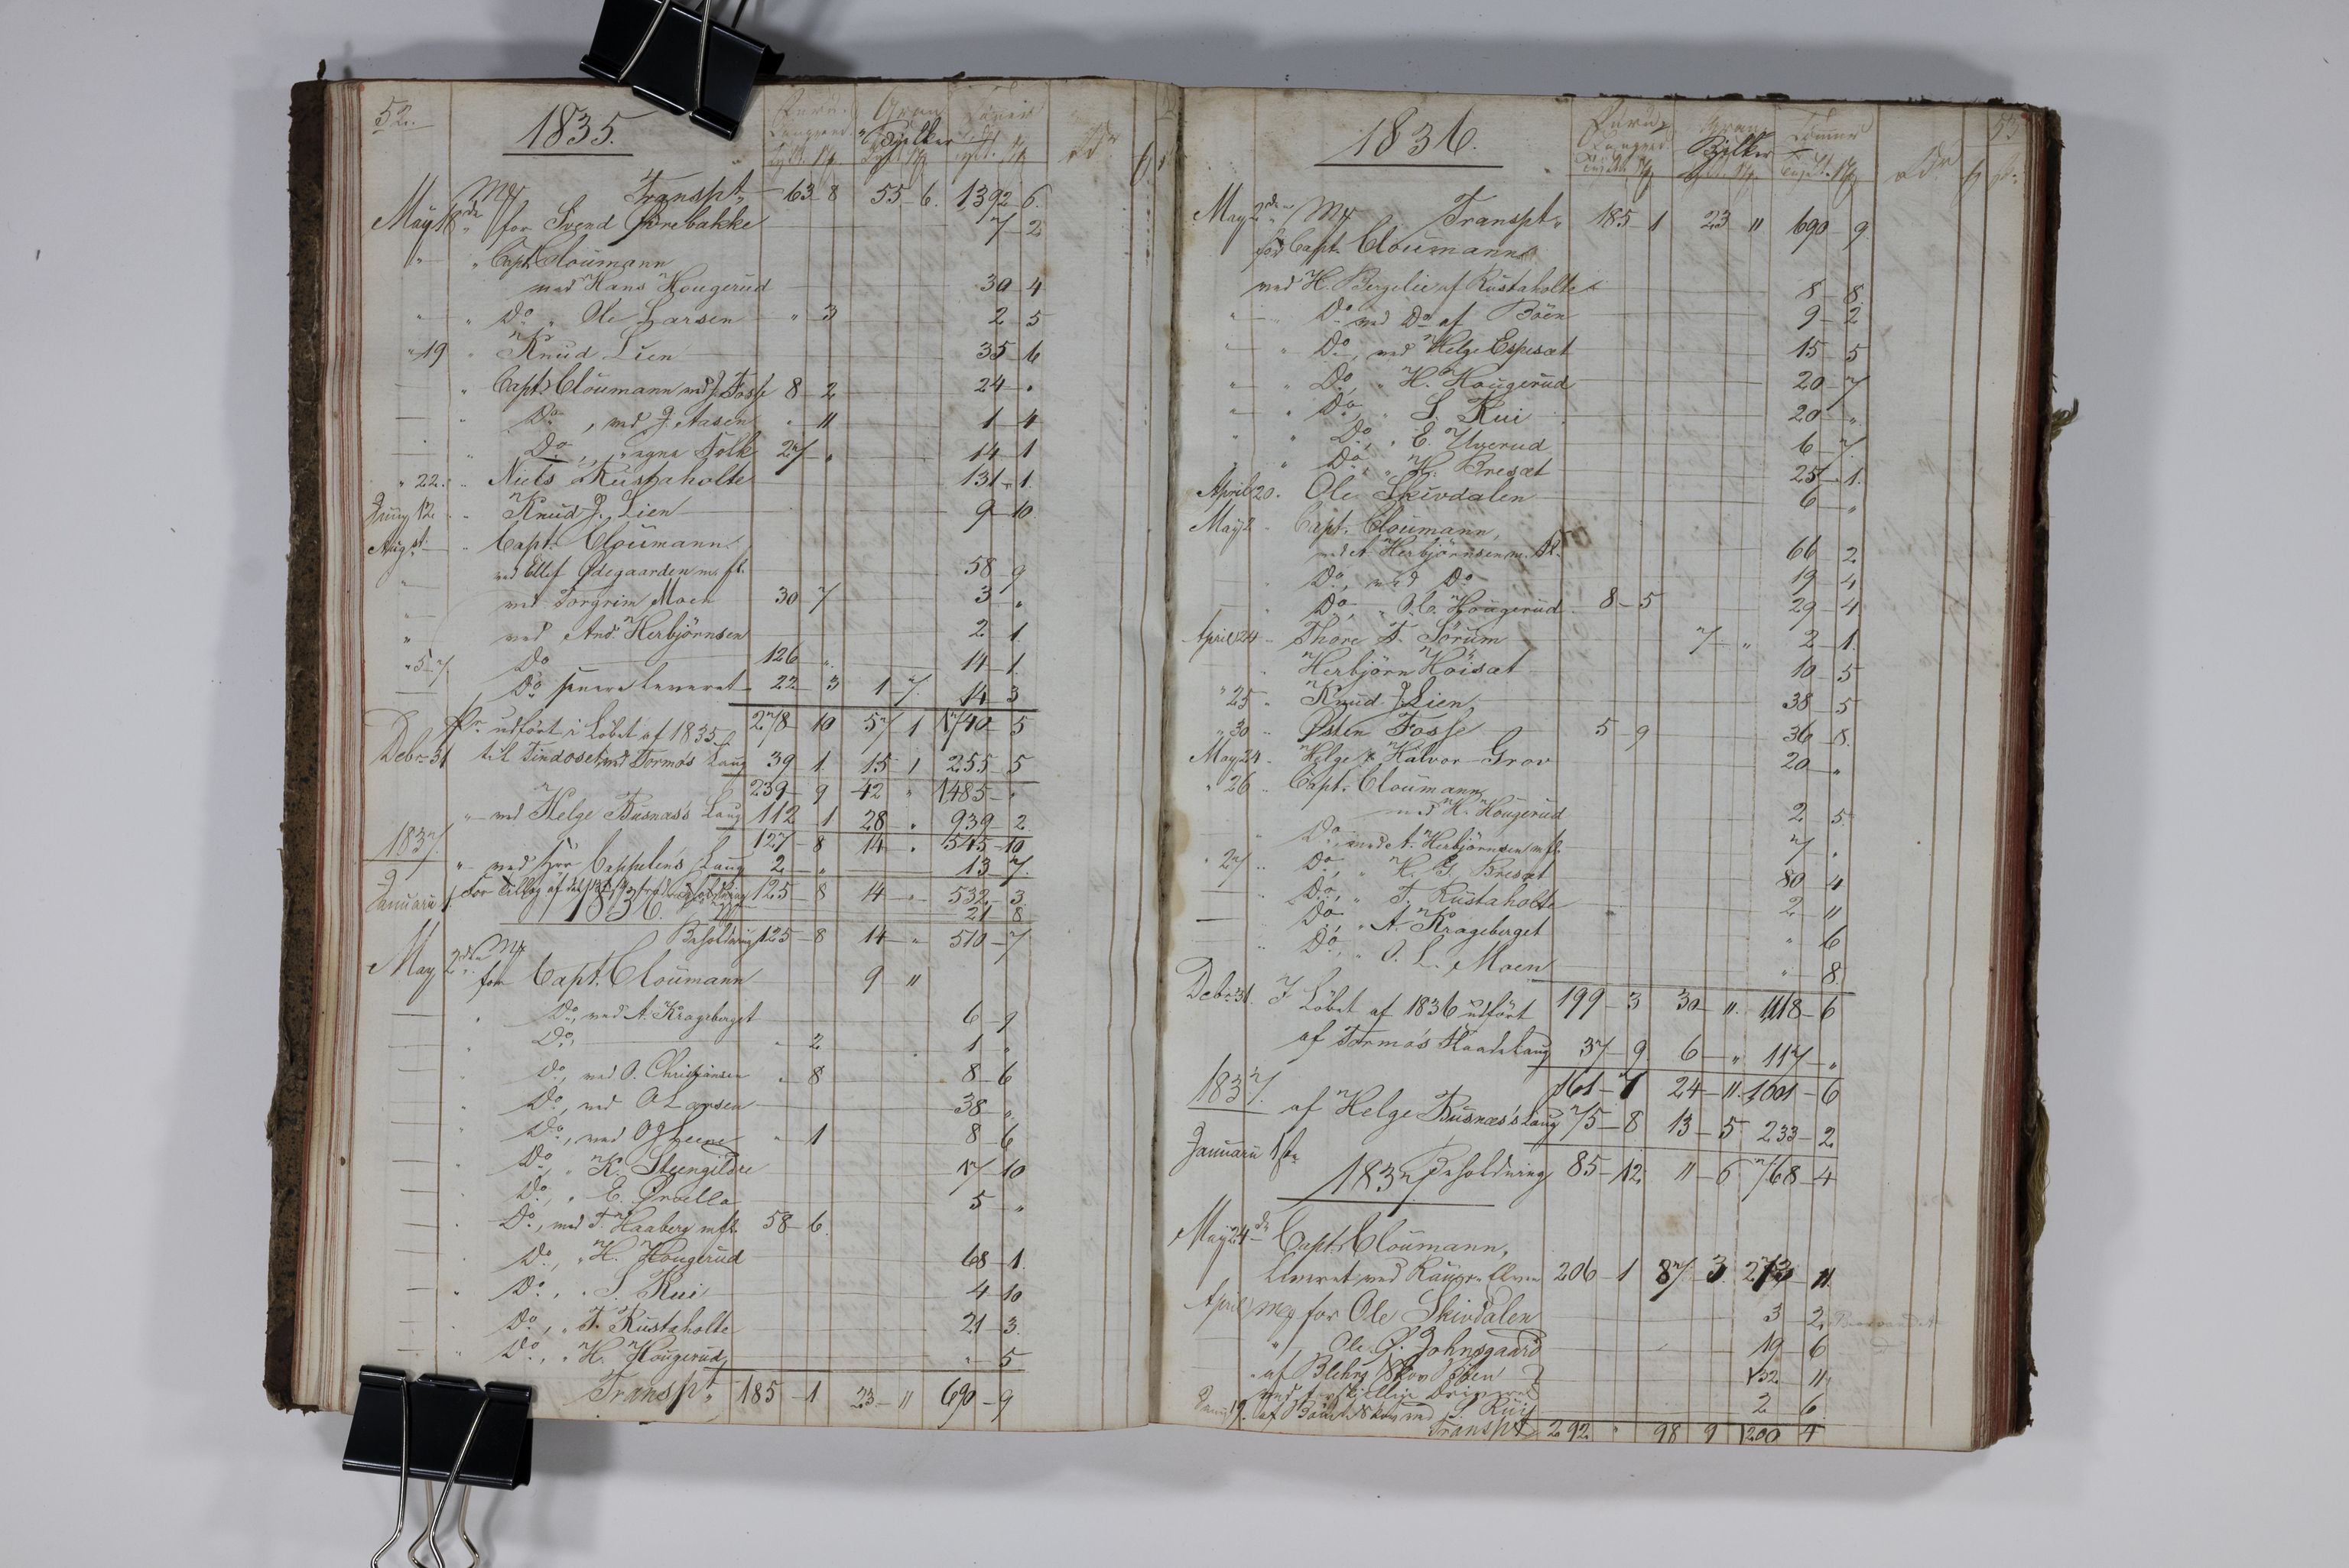 52.
1835.
Gran
Bjelker
Transpt 63 - 8 55 - 6. 1392 - 6.
May 18de for Svend 7 - 2
" " Capt Cloumann
med Hans Hougerud 30 - 4
" " Do " Ole Larsen " 3 2 - 5
" 19 " Knud Lien 35 - 6
" Capt Cloumann med J. Fosse 8 - 2 24 - "
" Do, med J. Aasen " 11 1 - 4
" Do, " egne Folk 27 - " 14 - 1
" 22. " Niels Rustaholte 131 - 1.
Juny 12. " Knud J. Lien 9 - 10
Augst " Capt. Cloumann
" ved Ellef Ødegaarden m. fl. 58 - 9
" med Torgrim Moen 30 - 7 3 - "
" med And. Herbjörnsen 2 - 1.
" 5-7 Do 126 - " 14 - 1.
Do senere leveret 22 - 3 1 - 7. 14 - 3
udfört i Löbet af 1835 278 - 10 57 - 1 1740 - 5
Debr 31 til Tindoset med Tormos Laug 39 - 1 15 - 1 255 - 5
239 - 9 42 " 1485 - "
" med Helge Busnæs's Laug 112 - 1 28 - " 939 - 2
1837. 127 - 8 14 - " 545 - 10
" med Hör Cappelens Laug 2 - " 13 - 7.
Januari 1. 125 - 8 14 - " 532 - 3
1836. 21 - 8
Beholdning 125 - 8 14 - " 510 - 7
May 2den
for Capt. Cloumann 9 - 11
" Do, med A. Krageberget 6 - 9
" Do, " 2 1 - "
" Do, med O. Christjansen " 8 8 - 6
" Do, med O Larsen 38 - "
" Do, med " 1 8 - 6
" Do, " K. Steengildre 17 - 10
" Do, " E. 5 - "
" Do, med T. Haaberg m fl. 58 - 6.
" Do, " H. Hougerud 68 - 1.
" Do, " S. Rui 4 - 10
" Do, " T. Rustaholte 21 - 3.
" Do, " H. Hougerud " - 5
Transpt 185 - 1 23 - 11 690 - 9
53
1836.
Bjelker
May 2den Transpt. 185 - 1 23 - 11 690 - 9.
for Capt. Cloumann
med H. Bergelie af Rustaholte 8 - 8.
" " Do med Do af Böen 9 - 2
" " Do, med Helge Espesæt 15 - 5
" " Do, " H. Hougerud 20 - 7
" " Do, " S. Rui 20 - "
" " Do, " E. Uverud 6 - 7.
" Do, " H. Bresæt 25 - 1.
April 20. Ole Skivdalen 6 - "
May 2 " Capt. Cloumann,
med A Herbjörnsen m. fl. 66 - 2
" Do, med Do 19 - 4
" Do, " O. C. Hougerud 8 - 5 29 - 4
April 24 " Thore T. Sörum 7 - " 2 - 1.
" Herbjörn Höisæt 10 - 5
" 25 " Knud J Lien, 38 - 5
" 30 " Østen Fosse 5 - 9 36 - 8.
May 24 " Helge & Halvor Grov 20 - "
" 26 " Capt. Cloumann,
med H. Hougerud 2 - 5.
" Do, med A. Herbjörnsen m fl. 7 - "
" 27 " Do, " H. G. Bresæt 80 - 4
" Do, " T. Rustaholte 2 - 11
Do, " A. Krageberget " 6
" Do, " O. L. Moen " 8.
Debr 31. I Löbet af 1836 udfört 199 - 3 30 - 11. 1118 - 6
af Tormos Haads Laug 37 - 9. 6 - " 117 - "
1837. 161 - 7 24 - 11. 1001 - 6
af Helge Busnæs's Laug 75 - 8 13 - 5 233 - 2
Januari 1ste Beholdning 85 - 12. 11 - 6 768 - 4
1837
May 24de Capt. Cloumann,
Leveret ved 206 - 1 87 - 3. 273 - 11.
April for Ole Skivdalen 3 - 2.
" Ole Johnsgaard 19 - 6
" af 132 - 11,
med forskjellige
Juny 19. af med S. Rui 2 6.
Transpt 292 " 98 9 1200 4